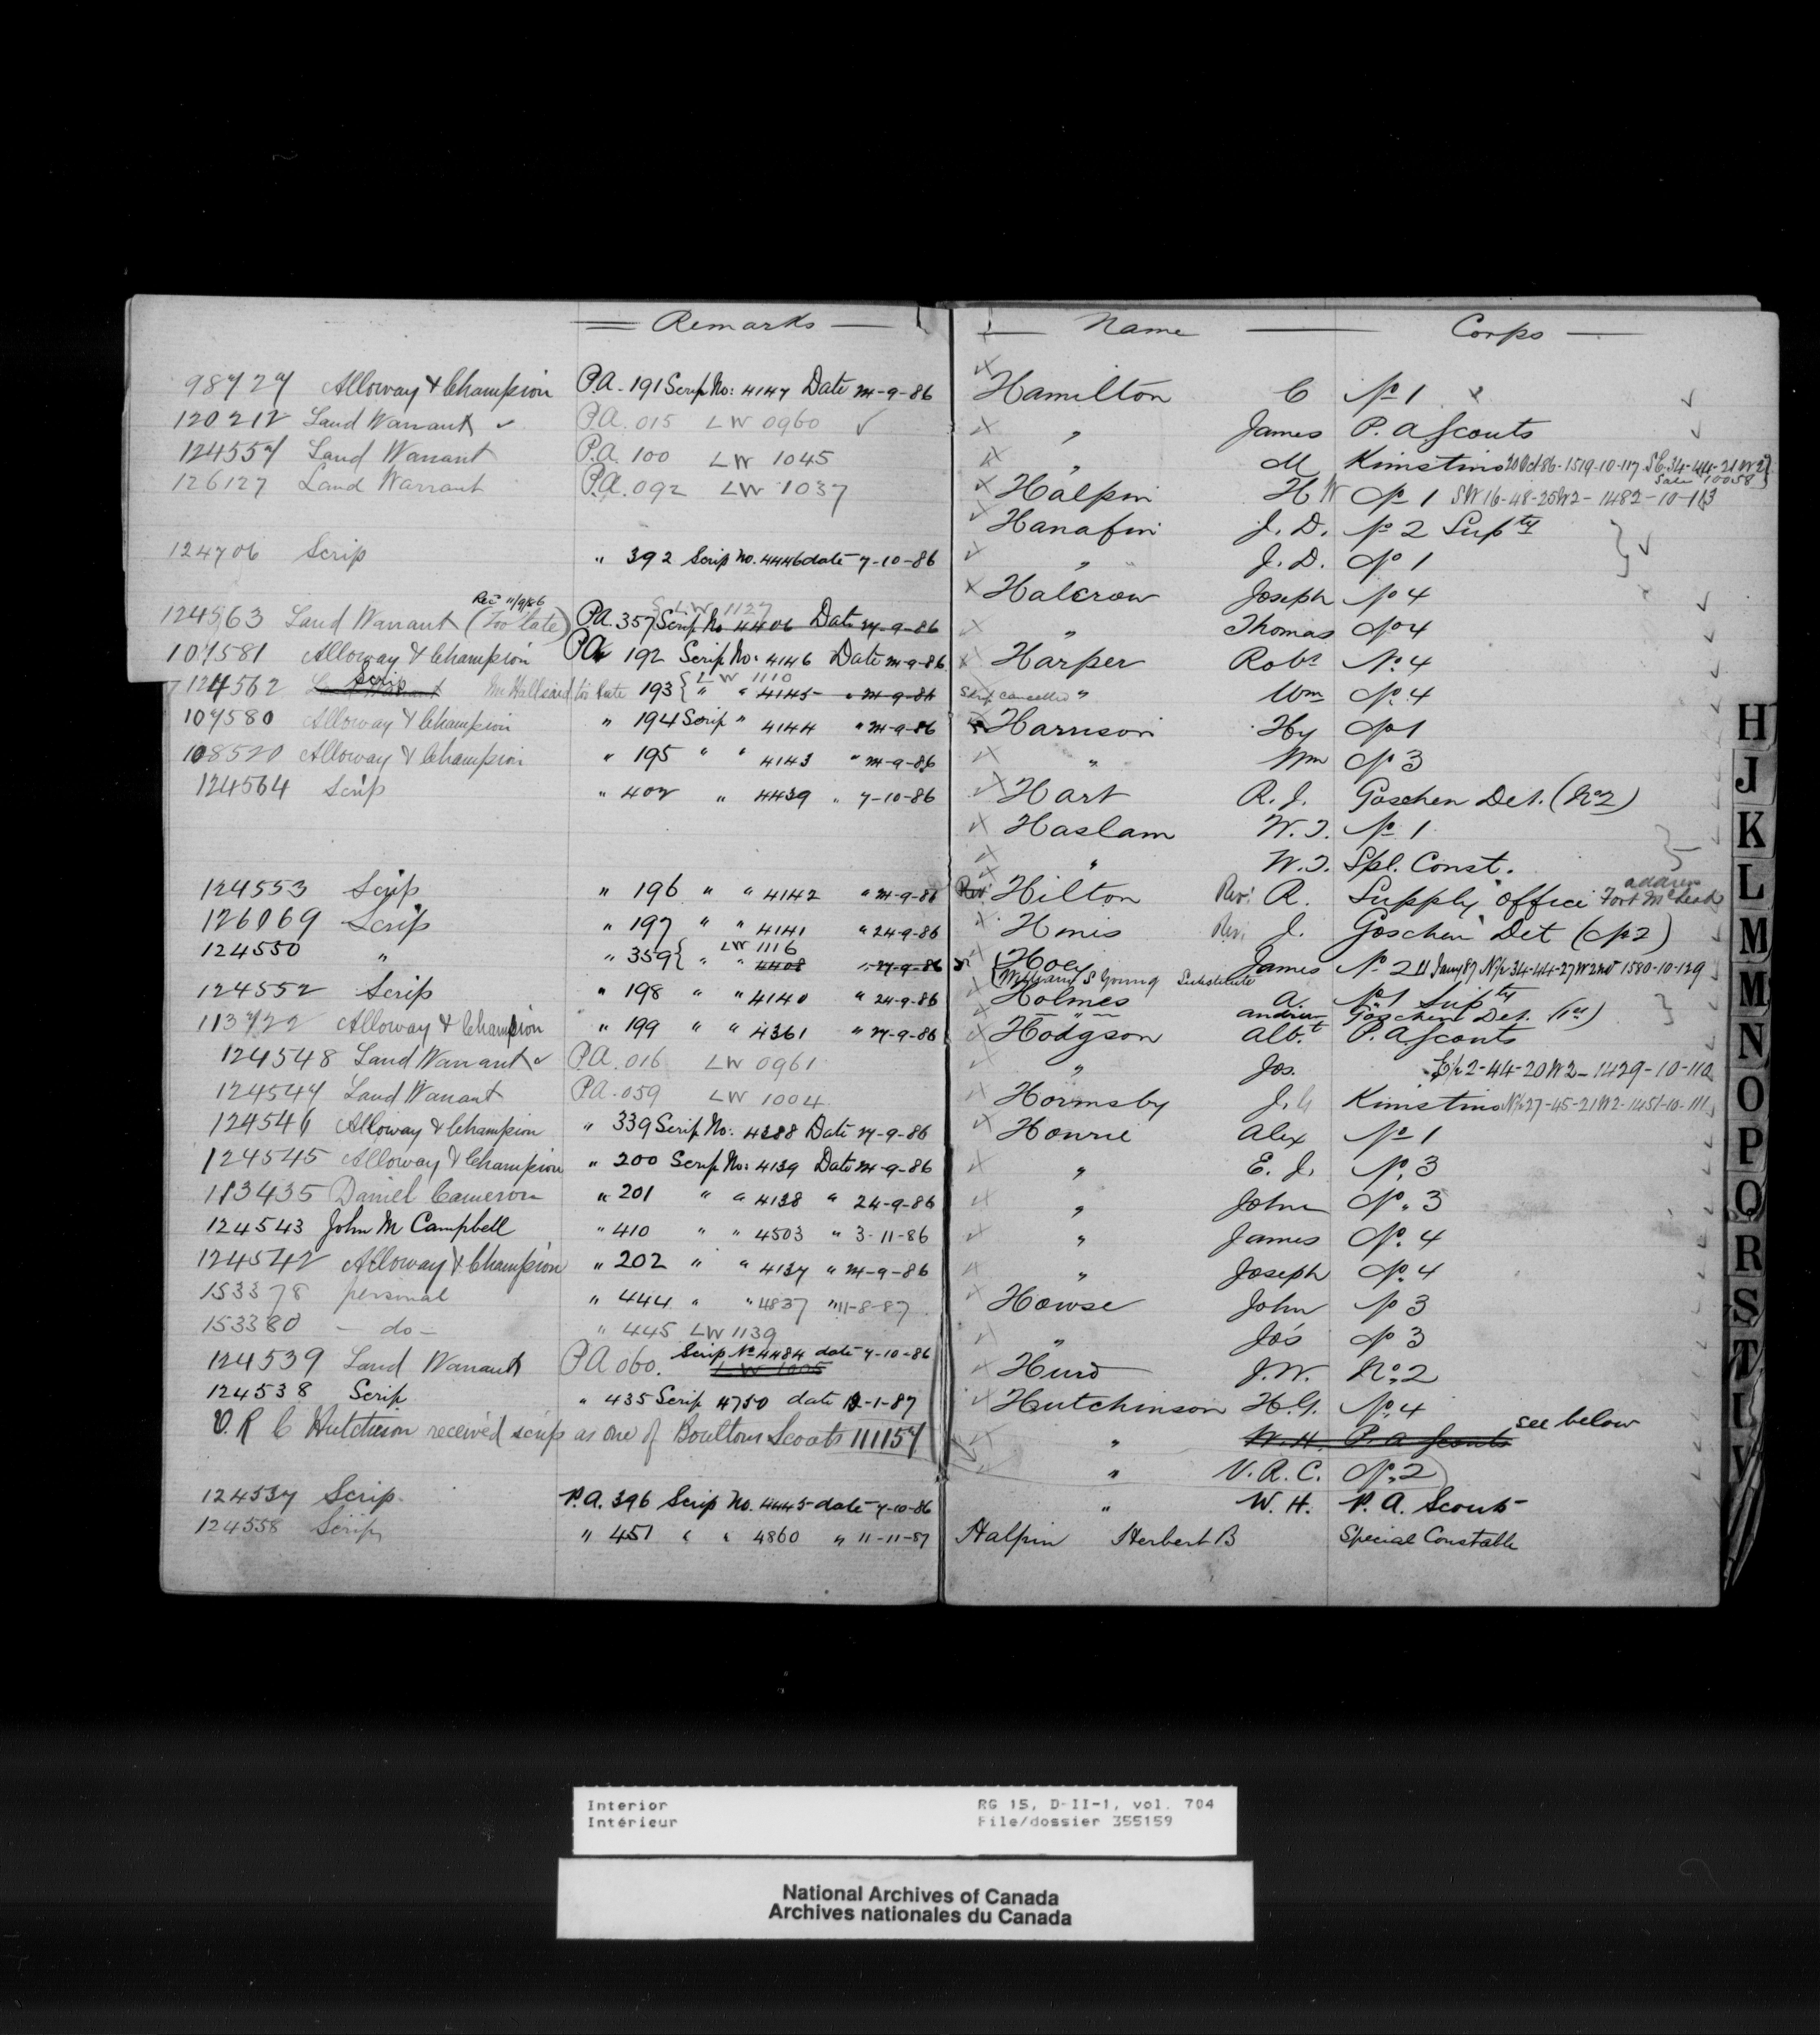 Remarks
98727 Alloway & Champion P.A. 191 Scrip No: 4147 Date 24-9-86
120212 Land Warrant P.A. 015 LW 0960
124557 Land Warrant P.A. 100 LW 1045
126127 Land Warrant P.A. 092 LW 1037
124706 Scrip " 392 Scrip No. 4446 date 7-10-86
Rec 11/9/86
LW 1127
124563 Land Warrant (Too late) P.A. 357 Scrip No 4406 Date 24-9-86
107581 Alloway & Champion PA 192 Scrip No: 4146 Date 24-9-86
Scrip LW 1110
124562 Land Warrant too late 193 { " " 4145 " 24-9-86
107580 Alloway & Champion " 194 Scrip " 4144 " 24-9-86
108520 Alloway & Champion " 195 " " 4143 " 24-9-86
124564 Scrip " 402 " 4439 " 7-10-86
124553 Scrip " 196 " " 4142 " 24-9-86
126069 Scrip " 197 " " 4141 " 24-9-86
LW 1116
124550 " " 359 { " " 4408 " 24-9-86
124552 Scrip " 198 " " 4140 " 24-9-86
113722 Alloway & Champion " 199 " " 4361 " 24-9-86
124548 Land Warrant P.A. 016 LW 0961
124547 Land Warrant P.A. 059 LW 1004
124546 Alloway & Champion " 339 Scrip No. 4388 Date 24-9-86
124545 Alloway & Champion " 200 Scrip No: 4139 Date 24-9-86
113435 Daniel Cameron " 201 " " 4138 " 24-9-86
124543 John M Campbell " 410 " " 4503 " 3-11-86
124542 Alloway & Champion " 202 " " 4137 " 24-9-86
153378 personal " 444 " " 4837 " 11-8-87
153380 - do - " 445 LW 1139
Scrip No 4484 date 7-10-86
124539 Land Warrant P.A. 060. LW 1005
124538 Scrip " 435 Scrip 4750 date 12-1-87
V. R C Hutchison received scrip as one of Boultons Scouts 111157
124537 Scrip P.A. 396 Scrip No. 4445 date 7-10-86
124558 Scrip " 451 " " 4860 " 11-11-87
Name Corps
Hamilton C No 1
" James P. A Scouts
" M Kinistino 20 Oct 86-1519-10-117 SE. 34-44-21 W2
Sale 10058
Halpin H W No 1 SW 16-48-25W2-1482-10-113
Hanafin J. D. No 2 Supty
" J. D. No 1
Halcrow Joseph No 4
" Thomas No 4
Harper Robt No. 4
Scrip cancelled " Wm No. 4
Harrison Hy No 1
" Wm No 3
Hart R. J. Goschen Det. (No 2)
Haslam W. J. No 1
" W. J. Spl. Const.
address
Rev. Hilton Rev. A. Supply office Fort McLeod
Hinis Rev. J. Goschen Det (No 2)
Hoey James No 2 11 Jany 87 N½ 34-44-27 W2nd 1580-10-129
William S Young Substitute
Holmes A. No 1 Supty
" Andrew Goschen Det. (1st)
Hodgson Albt. P. A Scouts
" Jos. E½ 2-44-20 W2-1429-10-110
Hormsby J. Kinistino N½ 27-45-21 W2-1451-10-111
Hourie Alex No 1
" E. J. No. 3
" John No. 3
" James No. 4
" Joseph No. 4
Howse John No 3
" Jos No 3
Hurd J. W. No. 2
Hutchinson H. G. No. 4
" W. H. P. A Scouts see below
" V. R. C. No. 2
" W. H. P. A. Scouts
Halpin Herbert B Special Constable
H
J
K
L
M
M
N
O
P
Q
R
S
T
V
Interior RG 15, D-II-1, vol. 704
Intérieur File/dossier 355159
National Archives of Canada
Archives nationales du Canada